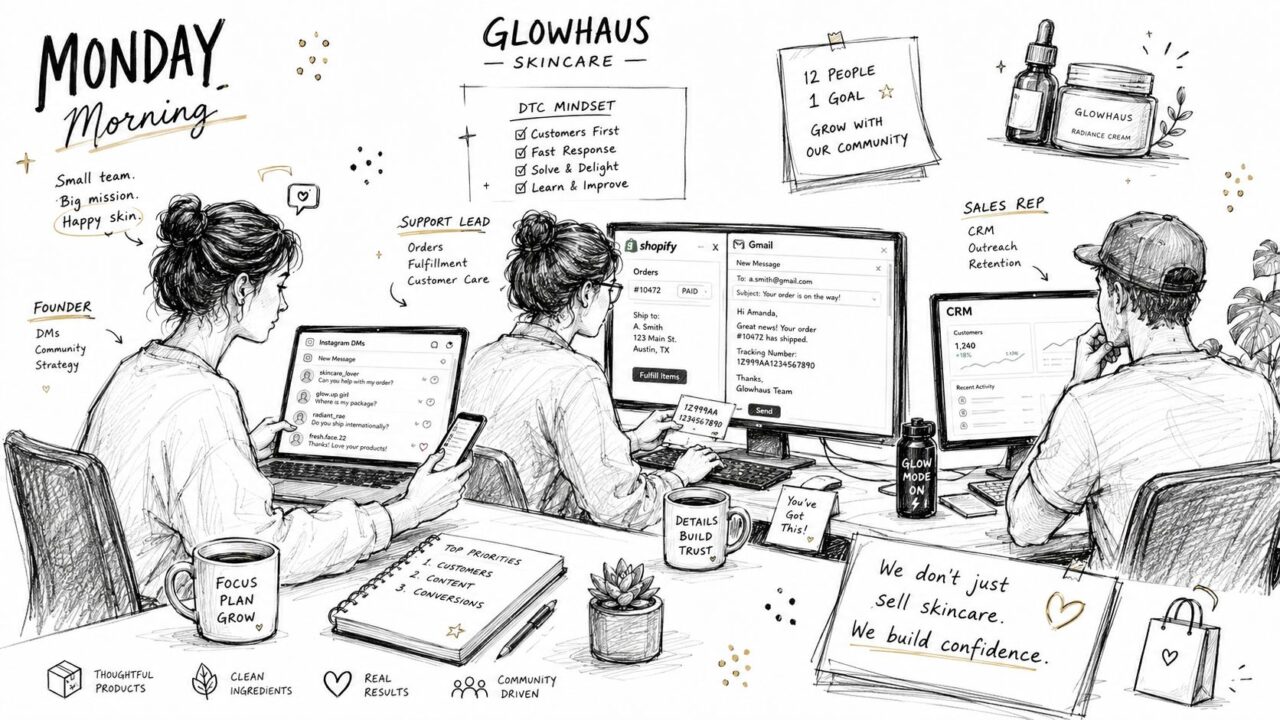 MONDAY
Morning
Small team.
Big mission.
Happy skin.
FOUNDER
DMs
Community
Strategy
GLOWHAUS
SKINCARE
DTC MINDSET
Customers First
Fast Response
Solve & Delight
Learn & Improve
12 PEOPLE
1 GOAL
GROW WITH
OUR COMMUNITY
GLOWHAUS
RADIANCE CREAM
SUPPORT LEAD
Orders
Fulfillment
Customer Care
SALES REP
CRM
Outreach
Retention
Instagram DMs
New Message
skincare_lover
Can you help with my order?
glow.up.girl
Where is my package?
radiant_rae
Do you ship internationally?
fresh.face.22
Thanks! Love your products!
shopify
X
Orders
#10472
PAID
Ship to:
A. Smith
123 Main St.
Austin, TX
Fulfill Items
Gmail
New Message
To: a.smith@gmail.com
Subject: Your order is on the way!
Hi Amanda,
Great news! Your order
#10472 has shipped.
Tracking Number:
1Z999AA1234567890
Thanks,
Glowhaus Team
Send
1Z999AA
1234567890
CRM
Customers
1,240
+18%
Recent Activity
GLOW
MODE
ON
You've
Got
This!
DETAILS
BUILD
TRUST
FOCUS
PLAN
GROW
TOP PRIORITIES
1. CUSTOMERS
2. CONTENT
3. CONVERSIONS
We don't just
sell skincare.
We build confidence.
THOUGHTFUL
PRODUCTS
CLEAN
INGREDIENTS
REAL
RESULTS
COMMUNITY
DRIVEN